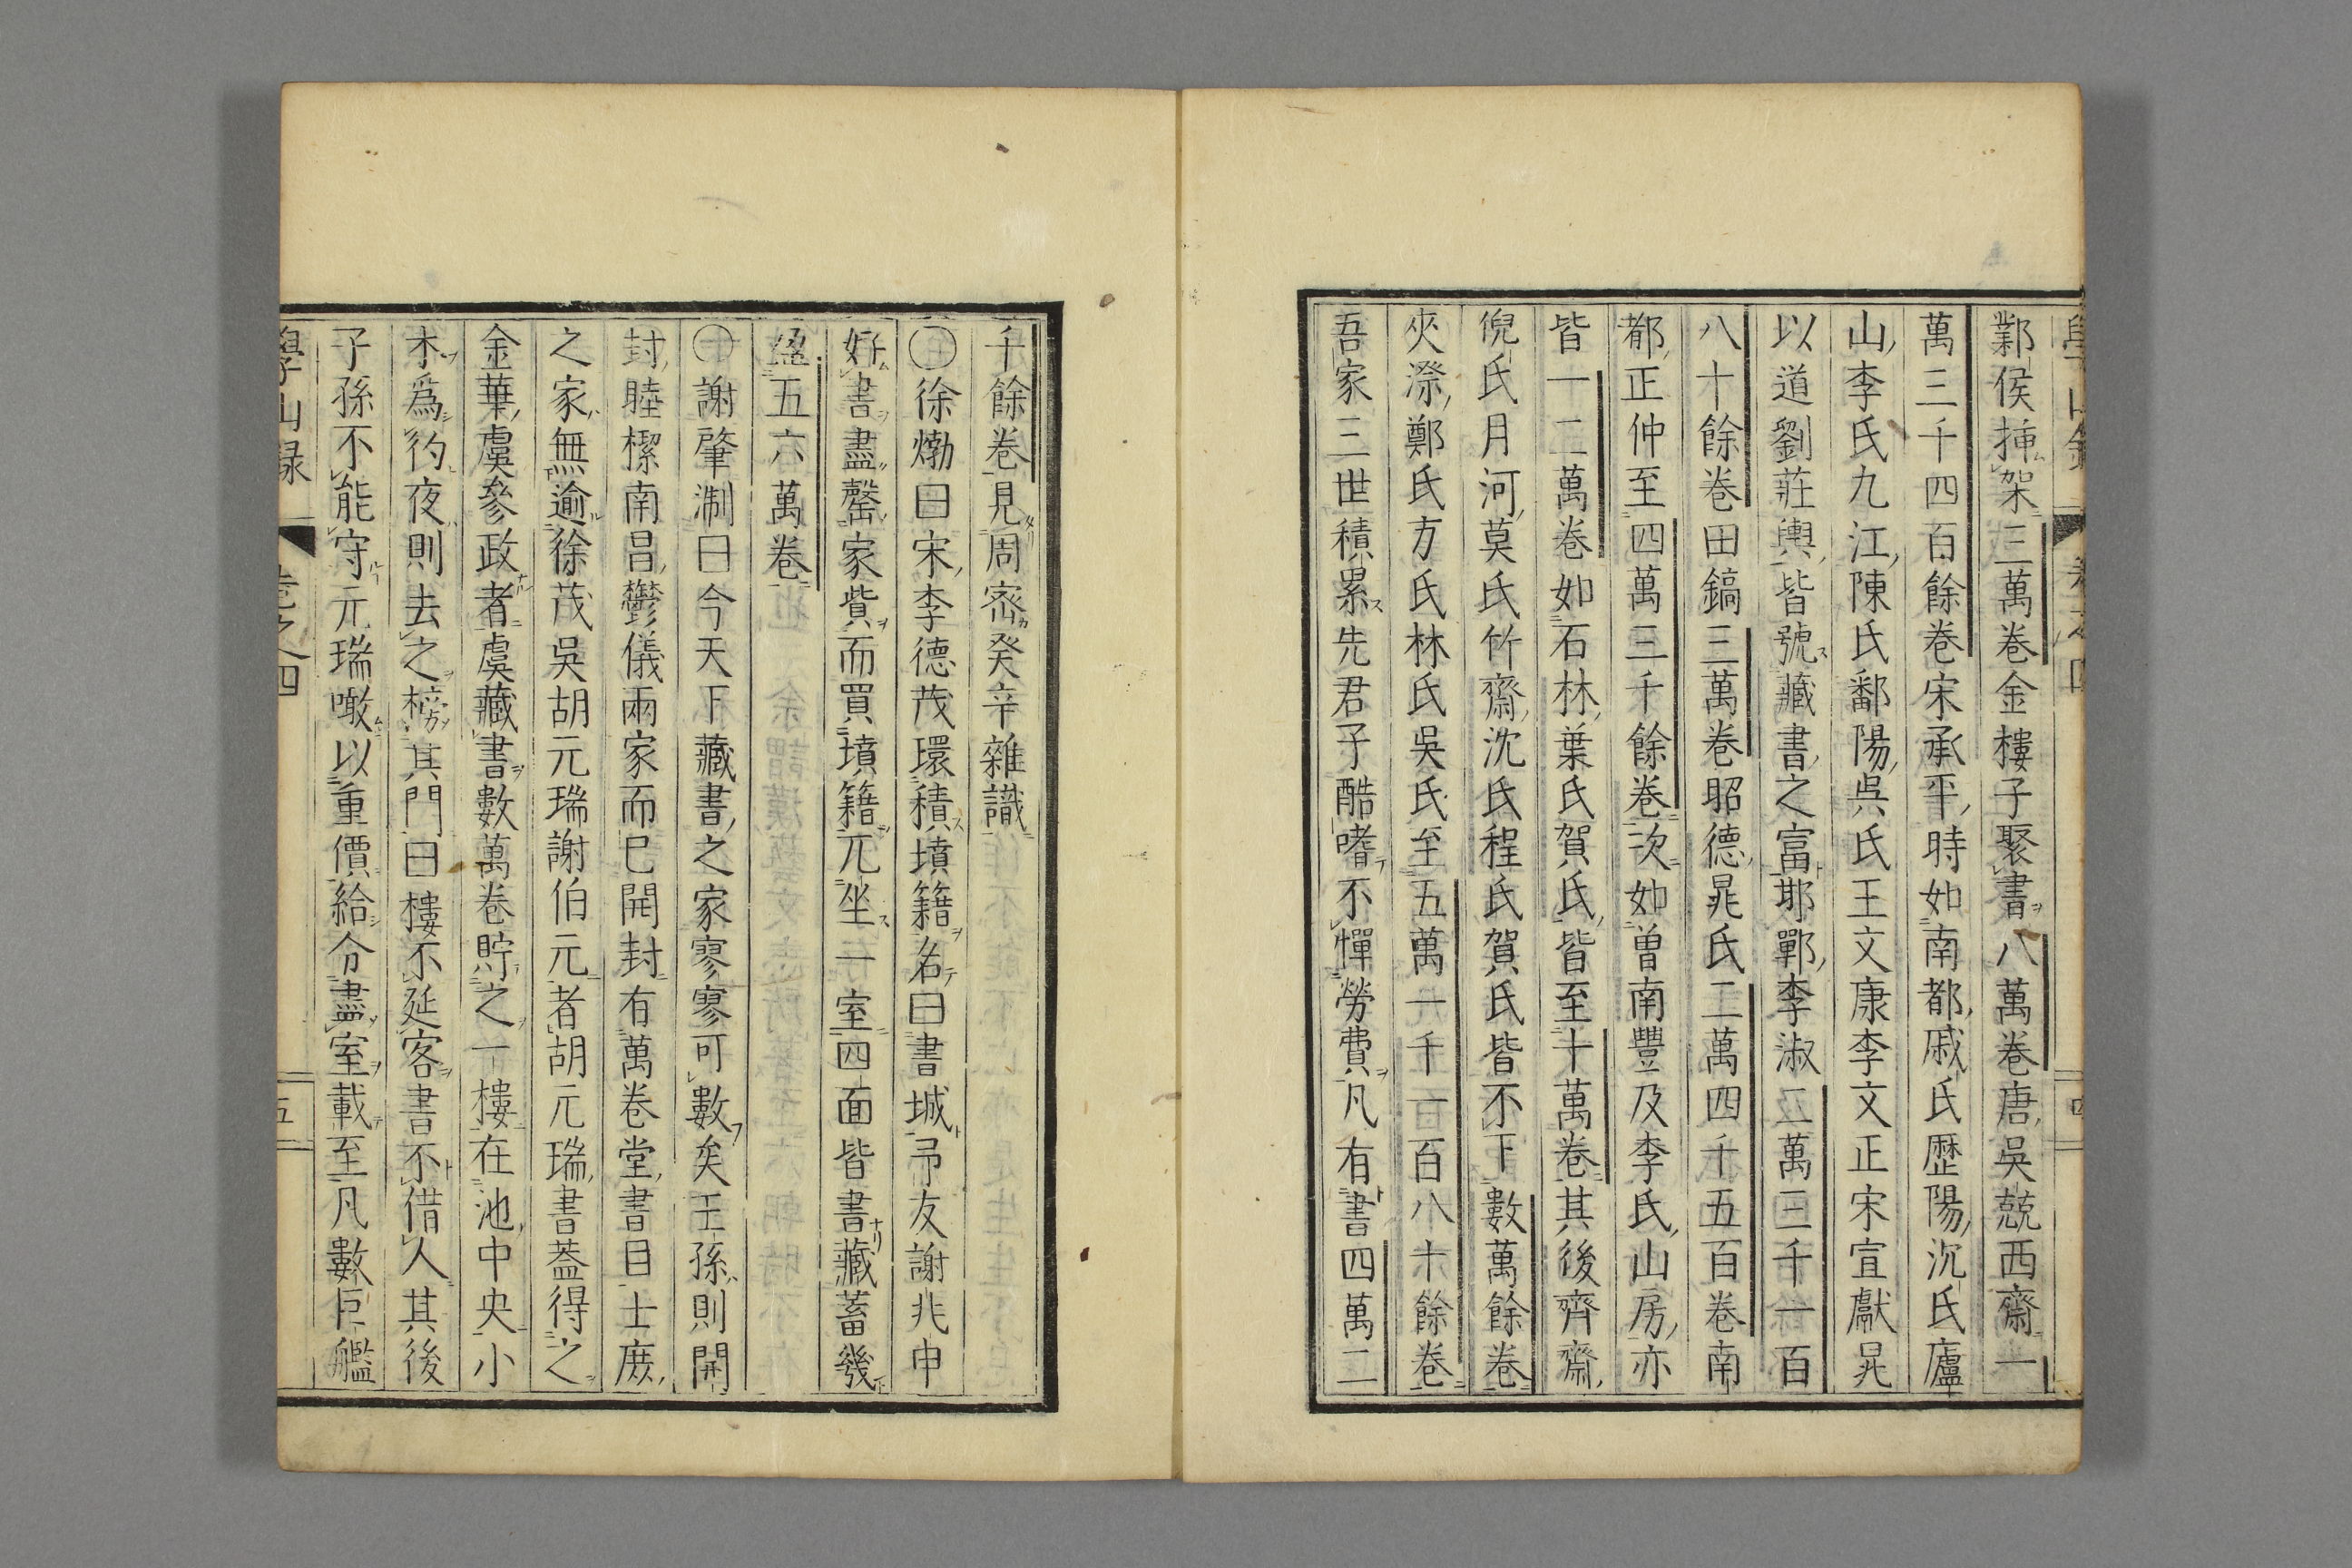 鄴侯挿架三萬卷金樓子聚書八萬卷唐吳兢西齋一
萬三千四百餘卷宋承平時如南都戚氏歴陽沉氏廬
山李氏九江陳氏鄱陽吳氏王文康李文正宋宣獻晁
以道劉莊輿皆號藏書之富耶鄲李淑五萬三千一百
八十餘卷田鎬三萬卷昭德晁氏二萬四千五百卷南
都正仲至四萬三千餘卷次如曽南豐及李氏山房亦
皆一二萬卷如石林葉氏賀氏皆至十萬卷其後齊齋
倪氏月河莫氏竹齋沈氏程氏賀氏皆不下數萬餘卷
夾漈鄭氏方氏林氏吳氏至五萬一千一百八十餘卷
吾家三世積累先君子酷嗜不憚勞費凡有書四萬二
千餘卷見周密癸辛雜識
〇徐㶿曰宋李德茂環積墳籍名曰書城吊友謝兆申
好書盡罄家貲而買墳籍兀坐一室四面皆書藏蓄幾
盈五六萬卷
〇謝肇淛曰今天下藏書之家寥寥可數矣王孫則開
封睦㮮南昌鬱儀兩家而巳開封有萬卷堂書目士庶
之家無逾徐茂吳胡元瑞謝伯元者胡元瑞書葢得之
金華虞參政者虞藏書數萬卷貯之一樓在池中央小
木為彴夜則去之榜其門曰樓不延客書不借人其後
子孫不能守元瑞噉以重價給令盡室載至凡數巨艦
學山録 卷之四 五